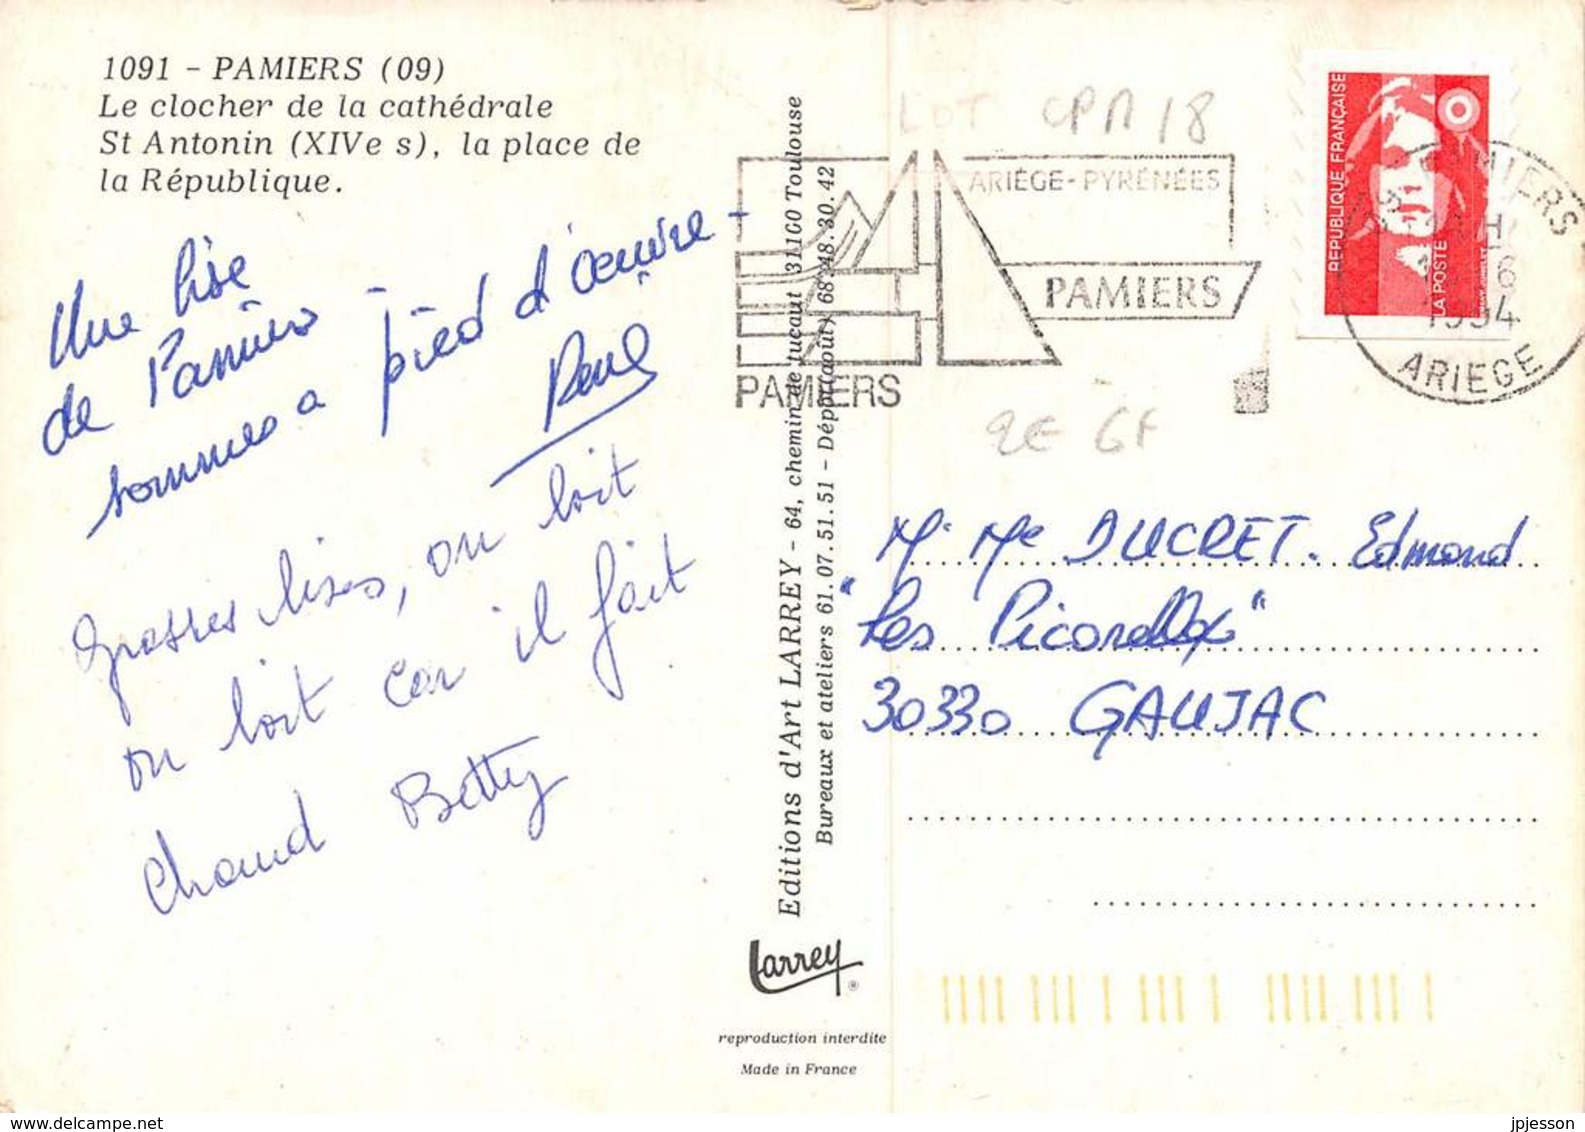 1091 - PAMIERS (09)
Le clocher de la cathédrale
St Antonin (XIVe s), la place de
la République.
Une bise
de Pamiers -
sommes a pied d'œuvre -
René
Grosses bises, on boit
on boit car il fait
chaud Betty
Editions d'Art LARREY - 64, chemin de tucaut 31100 Toulouse
Bureaux et ateliers 61.07.51.51 - Dépôt (août) 68.48.30.42
Larrey ®
reproduction interdite
Made in France
LOT CPM 18
ARIÈGE-PYRÉNÉES
PAMIERS
PAMIERS
2E GF
RÉPUBLIQUE FRANÇAISE
LA POSTE
PAMIERS
1994
ARIEGE
Mr Me DUCRET. Edmond
"Les
30330 GAUJAC
jpjesson